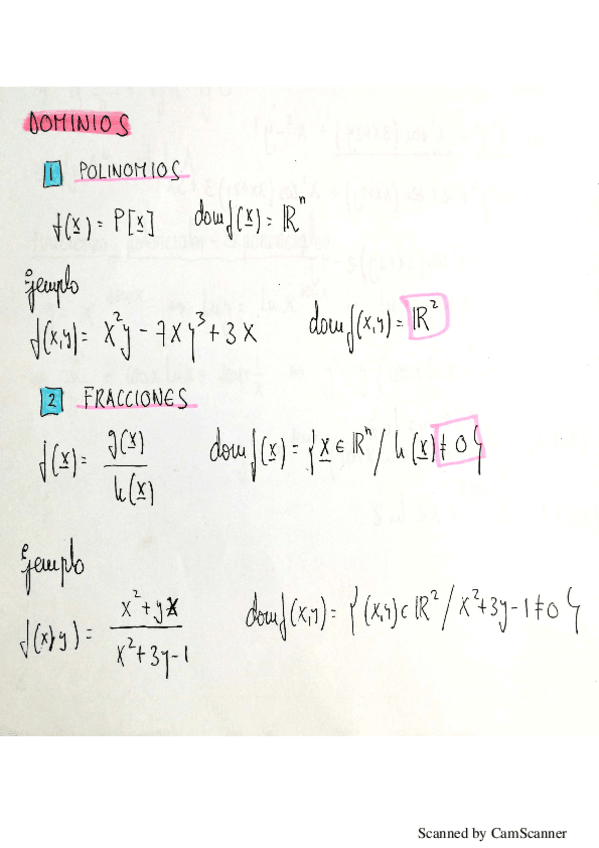 DOMINIOS
1 POLINOMIOS
f(x) = P[x]   dom f(x) = ℝⁿ
Ejemplo
f(x,y) = x²y - 7xy³ + 3x   dom f(x,y) = ℝ²
2 FRACCIONES
f(x) = g(x)/h(x)   dom f(x) = {x ∈ ℝⁿ / h(x) ≠ 0}
Ejemplo
f(x,y) = x² + yx / x² + 3y - 1   dom f(x,y) = {(x,y) ⊂ ℝ² / x² + 3y - 1 ≠ 0}
Scanned by CamScanner